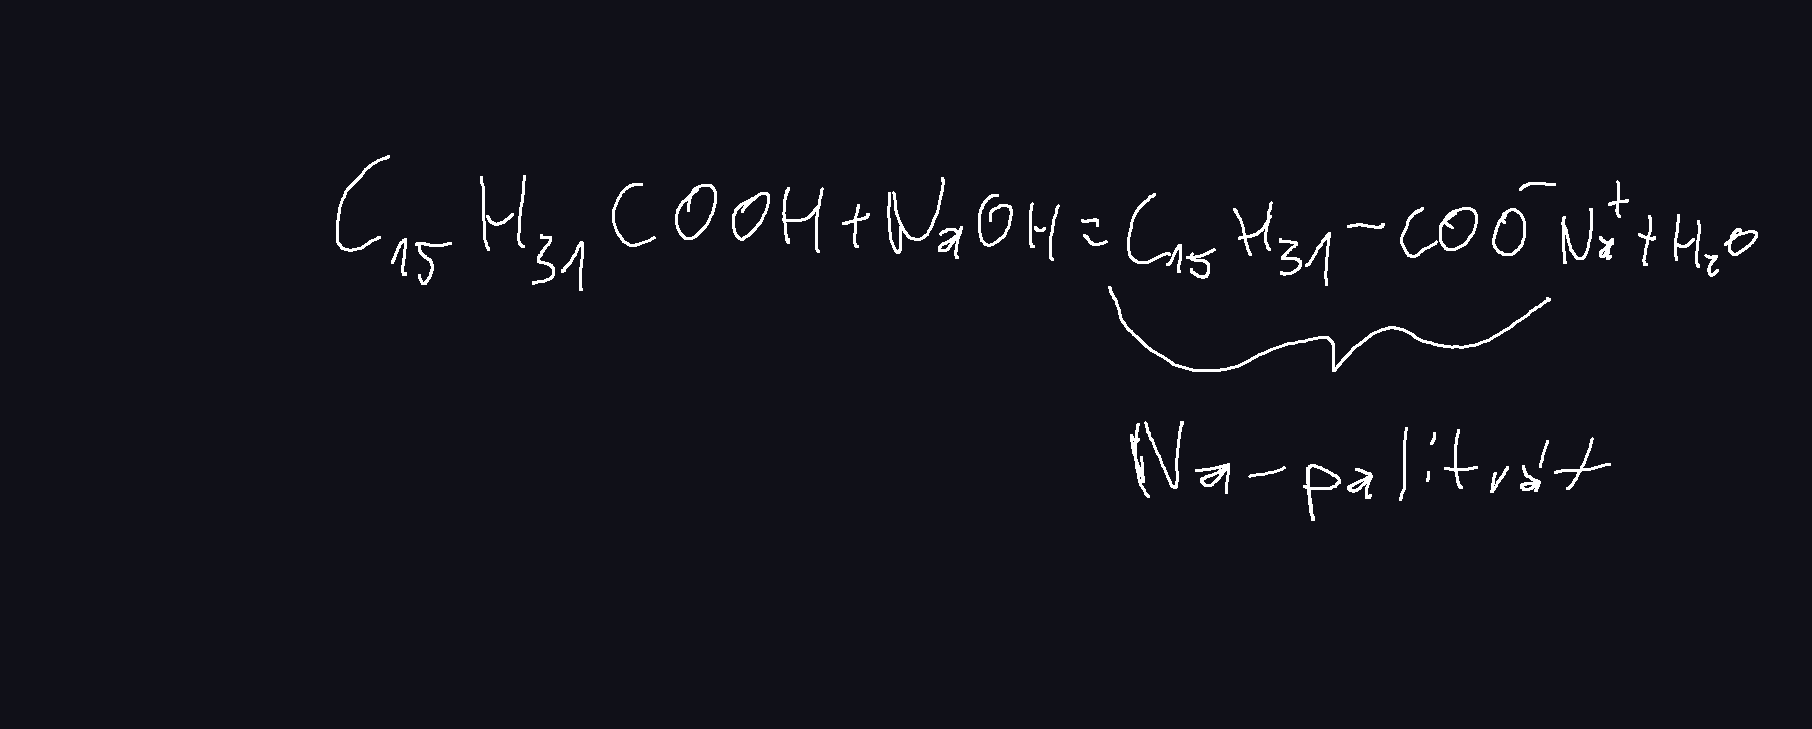 C₁₅H₃₁COOH + NaOH = C₁₅H₃₁-COO⁻Na⁺ + H₂O
Na-palitrát